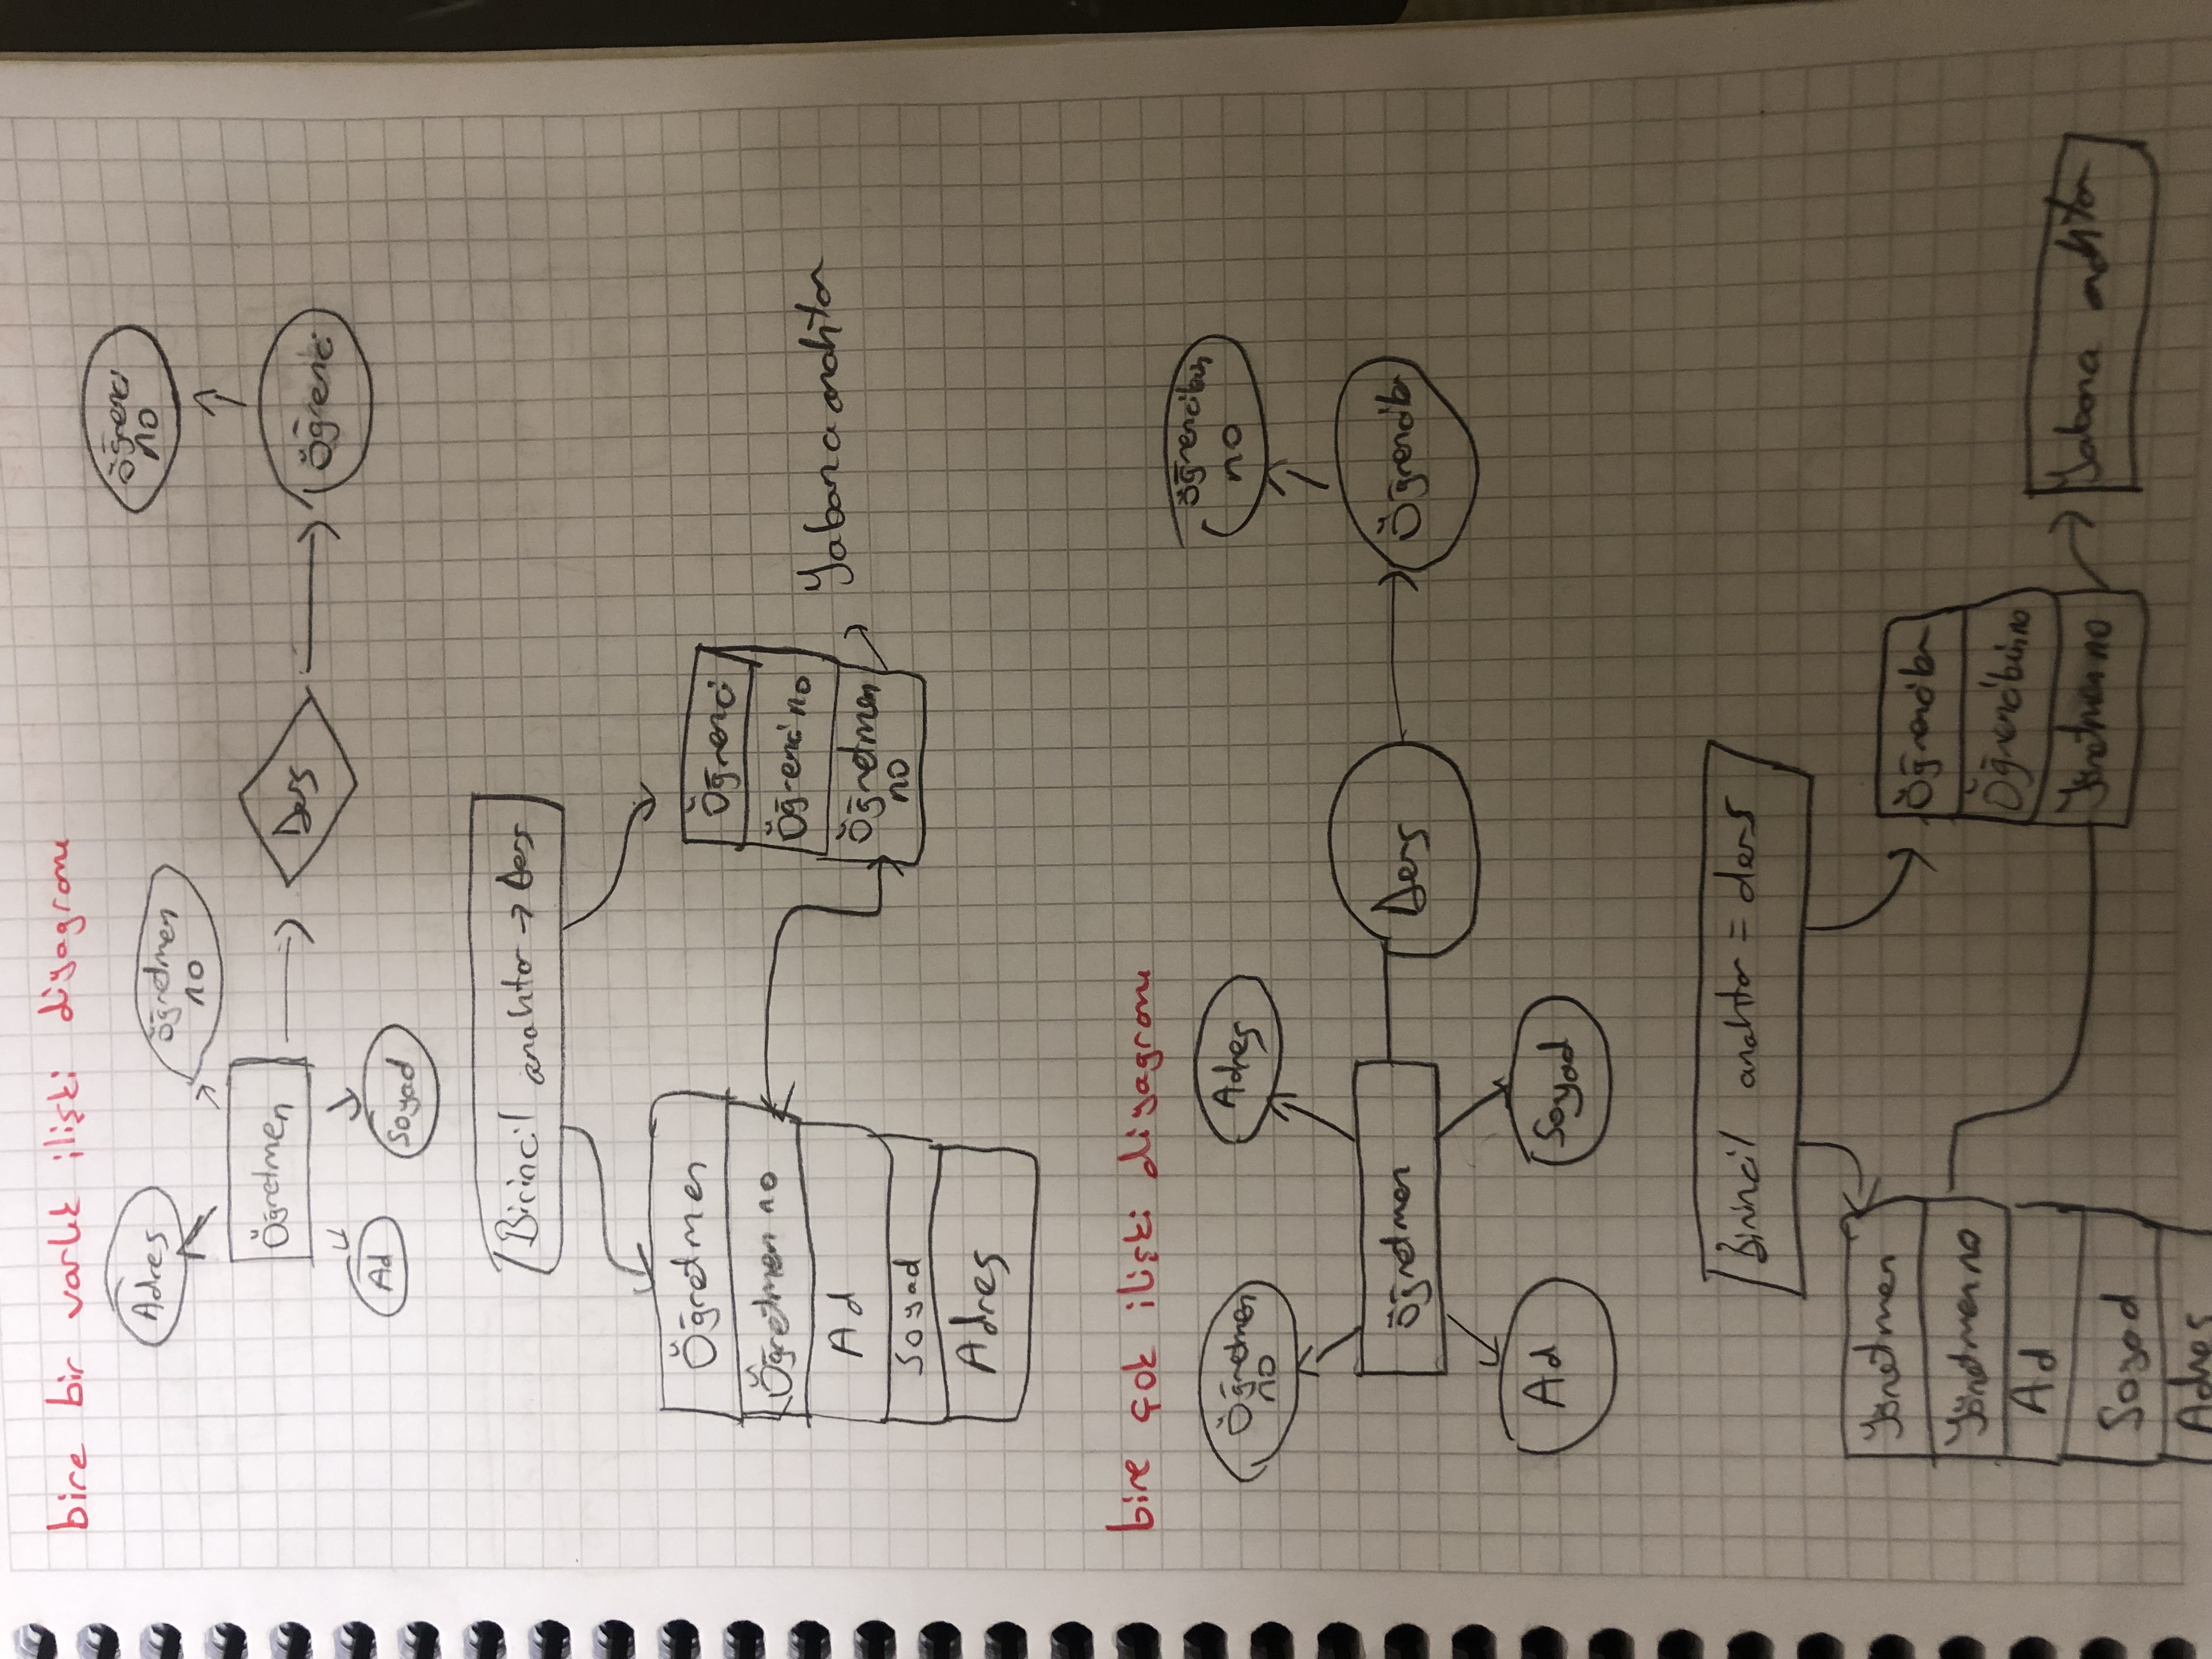 bire bir varlık ilişki diyagramı
Adres
Öğretmen
no
Öğrenci
no
Öğretmen
Ders
Öğrenci
Ad
Soyad
Birincil anahtar → Ders
Öğretmen
Öğretmen no
Ad
Soyad
Adres
Öğrenci
Öğrenci no
Öğretmen
no
Yabancı anahtar
bire çok ilişki diyagramı
Öğretmen
no
Adres
Öğrencibin
no
Öğretmen
Ders
Öğrenciler
Ad
Soyad
Birincil anahtar = ders
Yönetmen
Yönetmen no
Ad
Soyad
Adres
Öğrenciler
Öğrencibin no
Yönetmen no
Yabancı anahtar